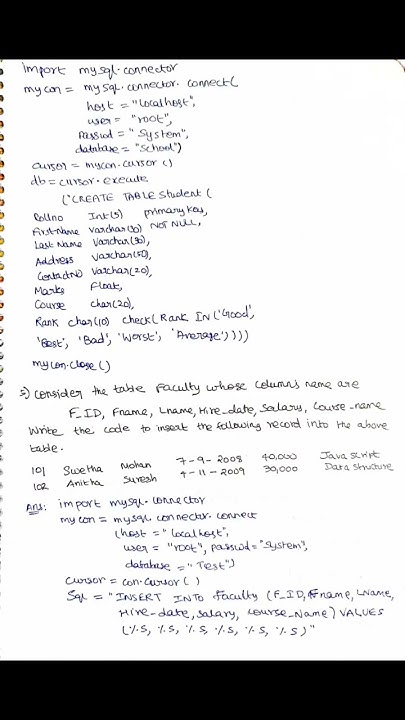 import mysql.connector
mycon = mysql.connector.connect(
host = "localhost",
user = "root",
Passwd = "System",
database = "School")
cursor = mycon.cursor()
db = cursor.execute
("CREATE TABLE Student (
Rollno Int(5) primary key,
FirstName varchar(30) NOT NULL,
Last Name Varchar(30),
Address Varchar(50),
ContactNo Varchar(20),
Marks Float,
Course char(20),
Rank char(10) check(Rank IN ('Good',
'Best', 'Bad', 'Worst', 'Average'))))
mycon.close()
5) Consider the table Faculty whose columns name are
F_ID, Fname, Lname, Hire_date, Salary, Course_name
Write the code to insert the following record into the above
table.
101 Swetha Mohan 7-9-2008 40,000 Java Script
102 Anitha Suresh 4-11-2009 30,000 Data Structure
Ans: import mysql.connector
mycon = mysql connector.connect
(host = "localhost",
user = "root", passwd = "System",
database = "Test")
cursor = con.cursor()
Sql = "INSERT INTO Faculty (F_ID, Fname, LName,
Hire-date, Salary, Course_Name) VALUES
(%s, %s, %s, %s, %s, %s)"